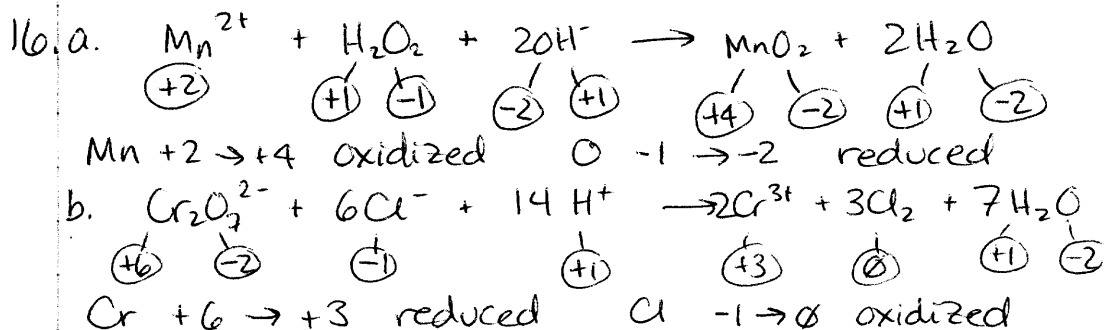 16. a. Mn²⁺ + H₂O₂ + 2OH⁻ → MnO₂ + 2H₂O
+2 +1 -1 -2 +1 +4 -2 +1 -2
Mn +2 → +4 oxidized O -1 → -2 reduced
b. Cr₂O₇²⁻ + 6Cl⁻ + 14 H⁺ → 2Cr³⁺ + 3Cl₂ + 7H₂O
+6 -2 -1 +1 +3 0 +1 -2
Cr +6 → +3 reduced Cl -1 → 0 oxidized